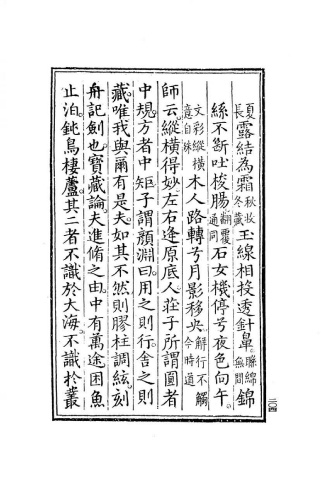 夏長露結為霜秋收冬藏玉線相投透針鼻聯綿無間錦
絲不斷吐梭腸翻覆通同石女機停兮夜色向午
文彩縱橫意自殊木人路轉兮月影移央解行不觸今時道
師云。縱橫得妙左右逢原底人莊子所謂圓者
中規。方者中矩子謂顏淵曰。用之則行舍之則
藏。唯我與爾有是夫。如其不然則膠柱調絃。刻
舟記劍也。寶藏論。夫進修之由。中有萬途困魚
止泊。鈍鳥棲蘆。其二者不識於大海。不識於叢